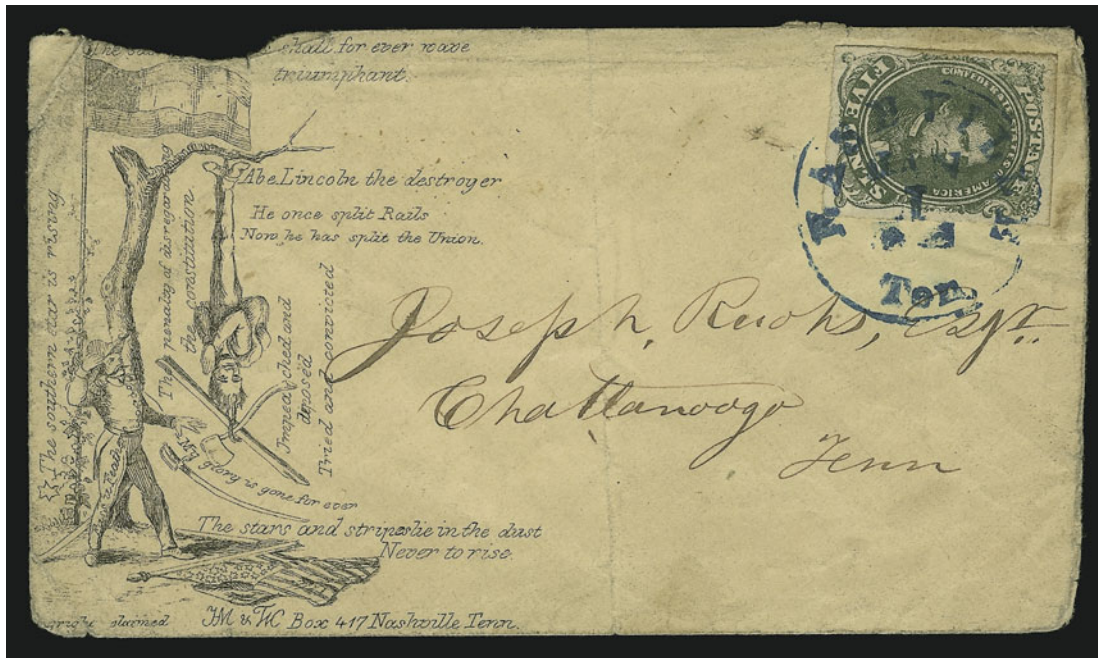 shall for ever wave
triumphant.
Abe Lincoln the destroyer
He once split Rails
Now he has split the Union.
The southern star is rising
The penalty of disregarding
the constitution
Impeached and
deposed
Tried and convicted
My glory is gone for ever
The stars and stripes lie in the dust
Never to rise.
claimed JM & WC Box 417 Nashville Tenn.
FIVE CENTS
POSTAGE
CONFEDERATE STATES OF AMERICA
NASHVILLE
Ten.
Joseph Ruohs, Esqr.
Chattanooga
Tenn